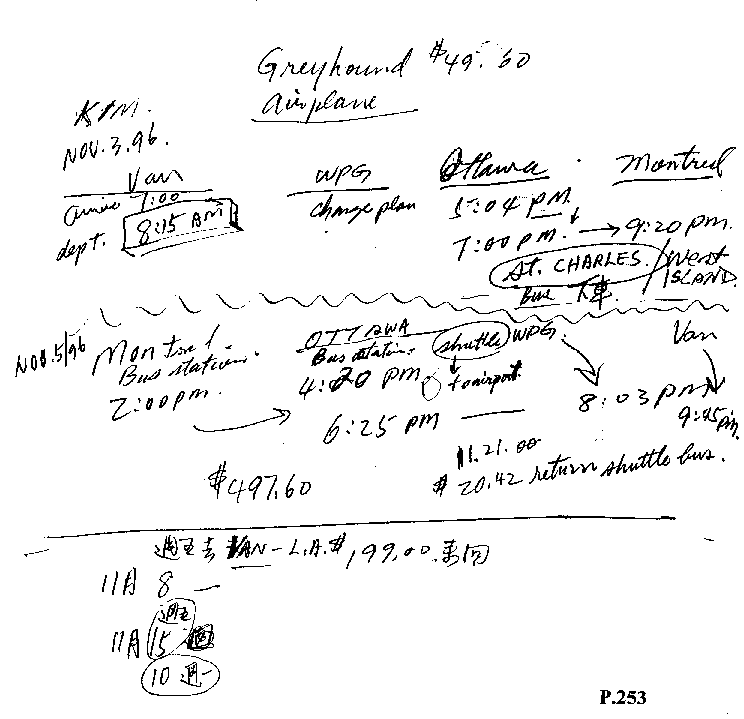 Greyhound $49.60
Airplane
NOV.3.96.
Van WPG Ottawa Montreal
arrive 7:00 change plan 5:04 PM
dept. 8:15 AM 7:00 PM. → 9:20 PM.
St. CHARLES. / WEST ISLAND
Bus 下車.
NOV.5/96 Montreal. OTTAWA shuttle WPG. Van
Bus station. Bus station.
2:00 pm. 4:20 PM to airport. 8:03 PM 9:45 pm.
6:25 PM
11.21.00
$497.60 $20.42 return shuttle bus.
週五去 VAN - L.A. $199.00.来回
11月 8 —
週五
11月 15
10 週一
P.253